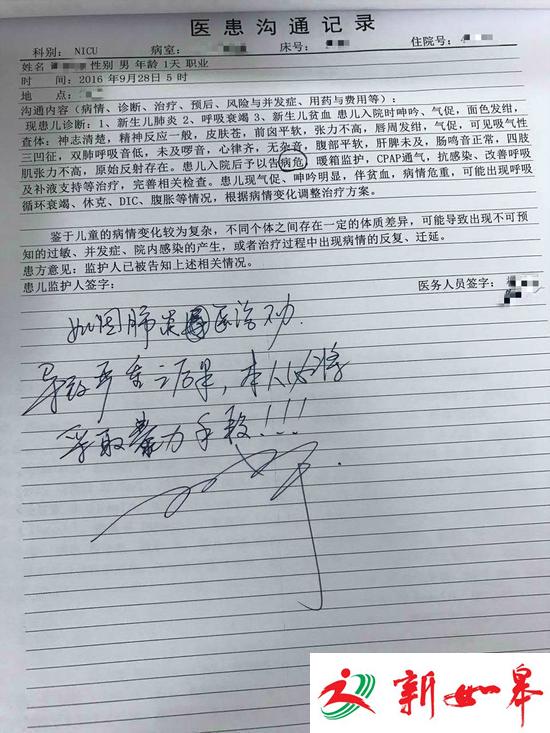 医患沟通记录
科别： NICU 病室： 床号： 住院号：
姓名 性别 男 年龄 1天 职业
时 间：2016 年9月28日 5 时
地 点：
沟通内容（病情、诊断、治疗、预后、风险与并发症、用药与费用等）：
现患儿诊断：1、新生儿肺炎 2、呼吸衰竭 3、新生儿贫血 患儿入院时呻吟、气促，面色发绀，
查体：神志清楚，精神反应一般，皮肤苍，前囟平软，张力不高，唇周发绀，气促，可见吸气性
三凹征，双肺呼吸音低，未及啰音，心律齐，无杂音，腹部平软，肝脾未及，肠鸣音正常，四肢
肌张力不高，原始反射存在。患儿入院后予以告病危，暖箱监护，CPAP通气，抗感染、改善呼吸
及补液支持等治疗，完善相关检查。患儿现气促、呻吟明显，伴贫血，病情危重，可能出现呼吸
循环衰竭、休克、DIC、腹胀等情况，根据病情变化调整治疗方案。
鉴于儿童的病情变化较为复杂，不同个体之间存在一定的体质差异，可能导致出现不可预
知的过敏、并发症、院内感染的产生，或者治疗过程中出现病情的反复、迁延。
患方意见：监护人已被告知上述相关情况。
患儿监护人签字： 医务人员签字：
如因肺炎医治不力
导致严重之后果，本人必将
采取暴力手段！！！
新如皋